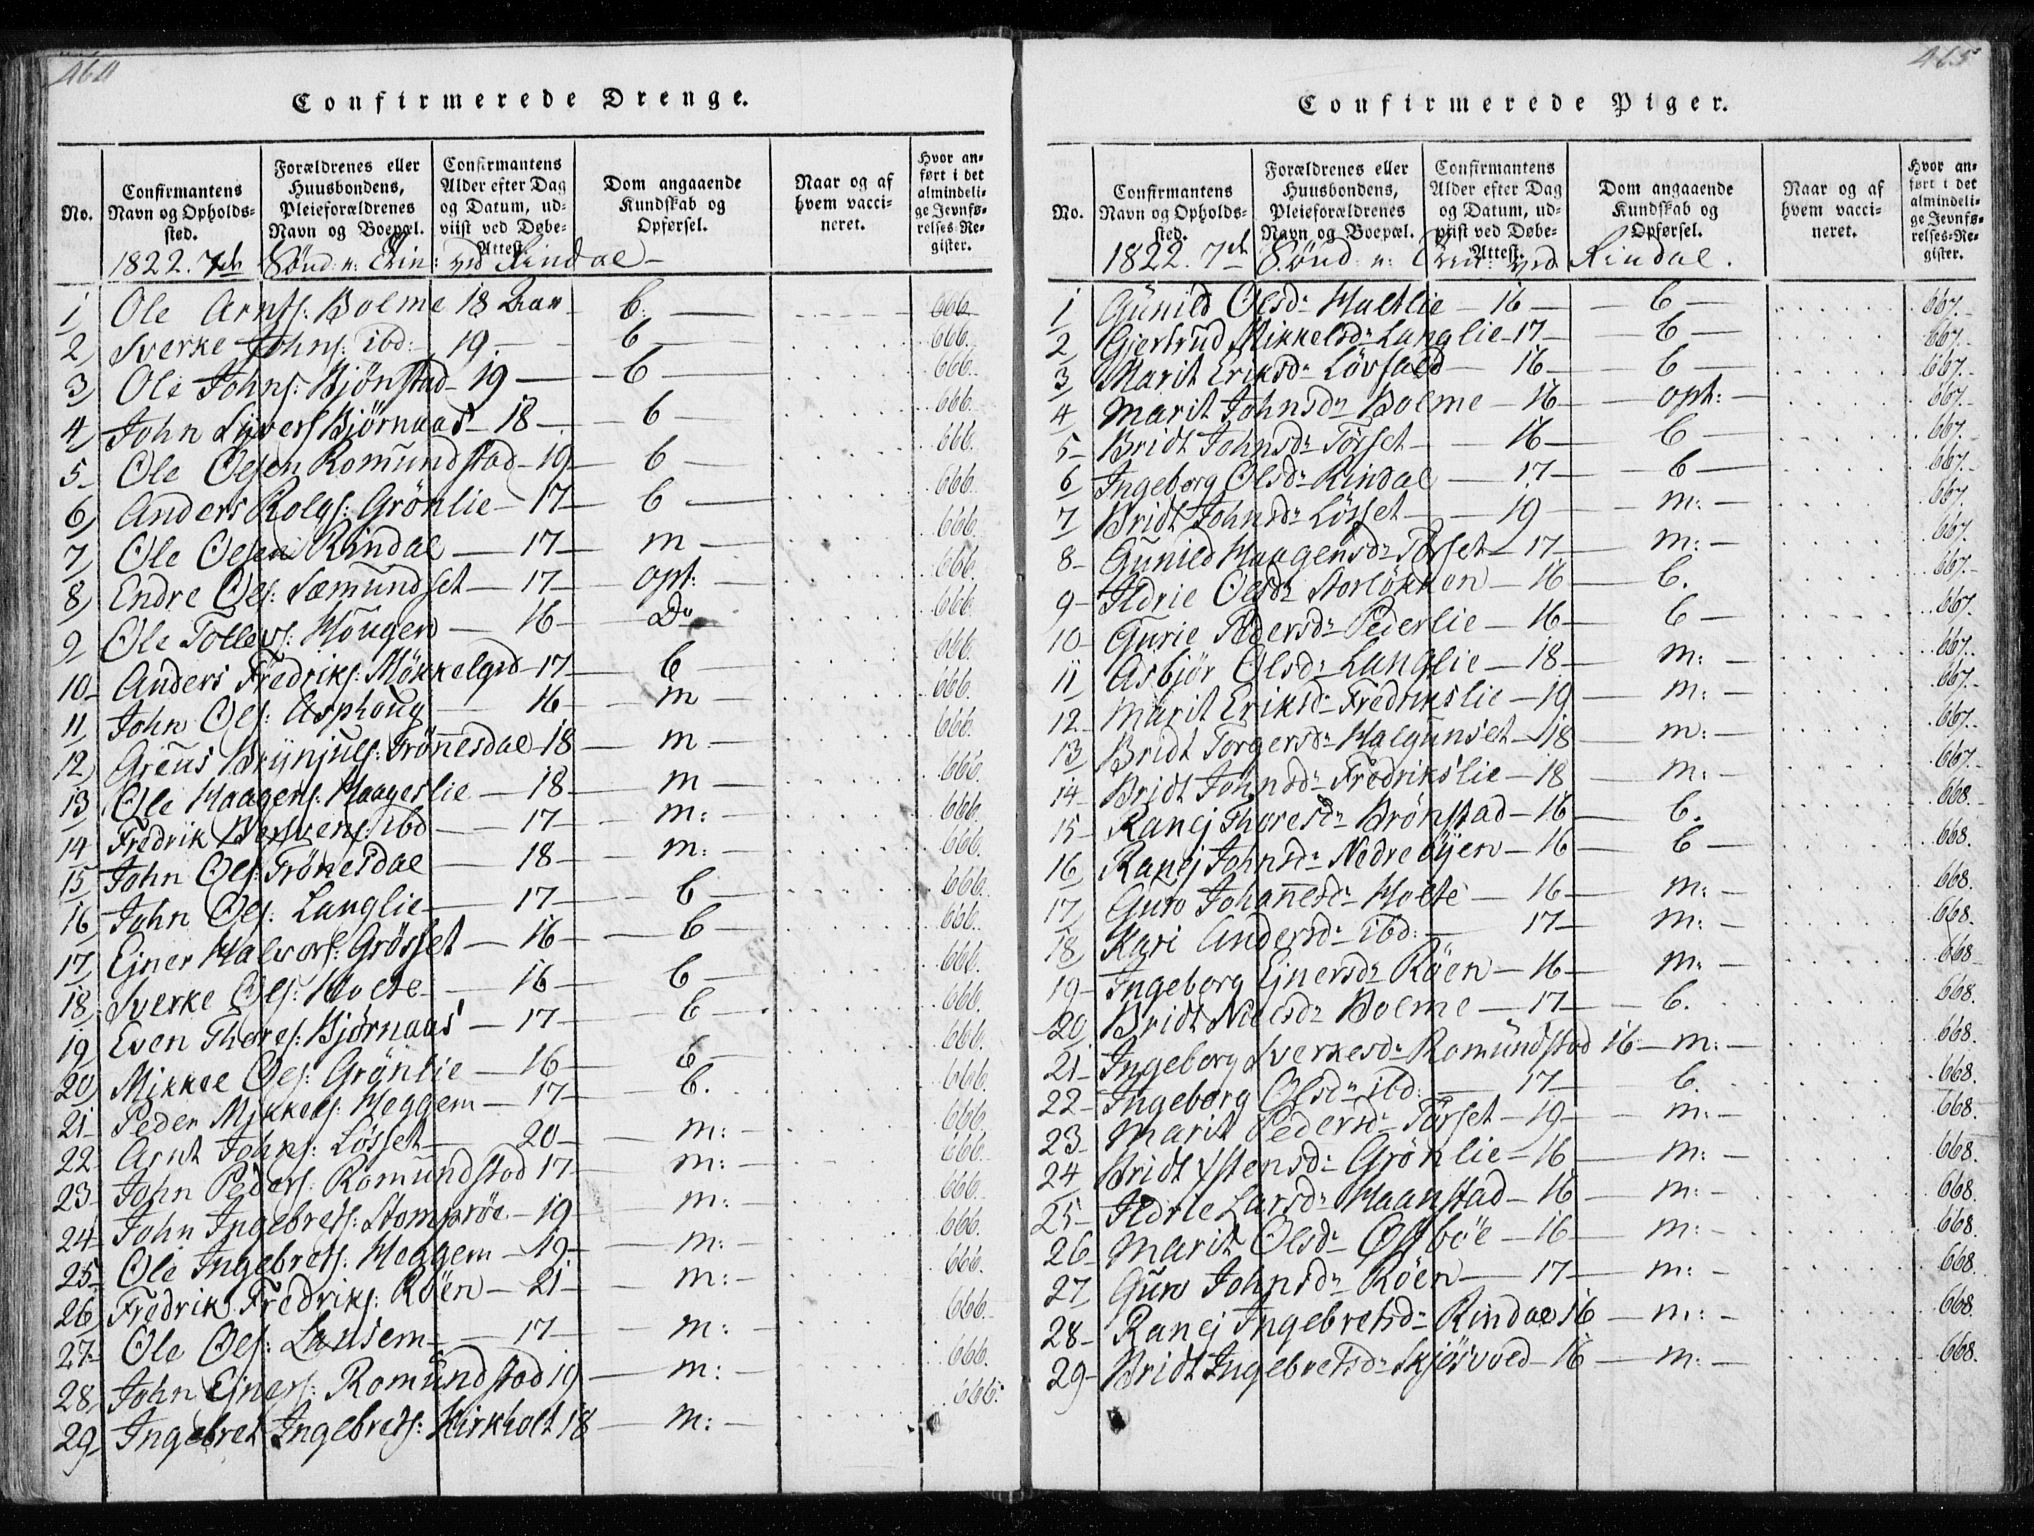 464
Confirmerede Drenge.
No.
Confirmantens Navn og Opholds-sted.
Forældrenes eller Huusbondens, Pleieforældrenes Navn og Boepæl.
Confirmantens Alder efter Dag og Datum, ud-viist ved Døbe-Attest.
Dom angaaende Kundskab og Opførsel.
Naar og af hvem vacci-neret.
Hvor an-ført i det almindeli-ge Jevnfø-relses-Re-gister.
1822. 7de Sönd: e: Trin: ved Rindal
1 Ole Arnts: Bolme 18 Aar b: 666.
2 Sverke Johns: ibd: 19. b 666.
3 Ole Johns: Bjönstad 19 b 666.
4 John Syvers Bjørnaas 18 b 666.
5 Ole Olsen Romundstad 19 b 666.
6 Anders Rolgs: Grönlie 17 b 666.
7 Ole Olsen Rindal 17 m 666.
8 Endre Ols: Sæmundset 17 opt: 666.
9 Ole Tollevs: Hougen 16 Do 666.
10 Anders Fredriks: Mökkelgrd 17 b 666.
11 John Ols: Asphoug 16 m 666.
12 Greus Brynjuls: Trönnesdal 18 m 666.
13 Ole Haagens: Haageslie 18 m 666.
14 Fredrik ibd 17 m: 666.
15 John Ols: Trönesdal 18 m: 666.
16 John Ols: Langlie 17 b 666.
17 Ejner Halvors: Grösset 16 b 666.
18 Sverke Ols: Holte 16 b 666.
19 Even Thores: Bjørnaas 17 b 666.
20 Mikkel Ols: Grönlie 16 b 666.
21 Peder Mikkels: Heggem 17 b. 666.
22 Arnt Johns: Lösset 20 m: 666.
23 John Peders: Romundstad 17 m: 666.
24 John Ingebrets: Stompröe 19 m: 666.
25 Ole Ingebrets: Heggem 19 m: 666.
26 Fredrik Fredriks: Röen 21 m: 666.
27 Ole Ols: Lansem 17 m: 666.
28 John Ejners: Romundstad 19 m: 666.
29 Ingebret Ingebrets: Kirkholt 18 m: 666.
465
Confirmerede Piger.
No.
Confirmantens Navn og Opholds-sted.
Forældrenes eller Huusbondens, Pleieforældrenes Navn og Boepæl.
Confirmantens Alder efter Dag og Datum, ud-viist ved Døbe-Attest.
Dom angaaende Kundskab og Opførsel.
Naar og af hvem vacci-neret.
Hvor an-ført i det almindeli-ge Jevnfø-relses-Re-gister.
1822. 7de Sönd: e: Trin: ved Rindal.
1 Gunild Olsdr Haltlie 16 b 667.
2 Gjertrud Mikkelsdr Langlie 17 b 667.
3 Marit Eriksdr Lövfald 16 b 667.
4 Marit Johnsdr Bolme 16 opt: 667.
5 Bridt Johnsdr Törset 16 b 667.
6 Ingeborg Olsdr Rindal 17 b 667.
7 Bridt Johnsdr Lösset 19 m: 667.
8 Gunild Haagensdr Törset 17 m: 667.
9 Ildrie Olsdr Storlökken 16 b. 667.
10 Gurie Pedersdr Pederlie 16 b 667.
11 Asbjör Olsdr Langlie 18 m: 667.
12 Marit Eriksdr Fredrikslie 19 m: 667.
13 Bridt Torgersdr Halgunset 18 m: 667.
14 Bridt Johnsdr Fredrikslie 18 m: 667.
15 Ranej Thoresdr Brönstad 16 b. 668.
16 Ranej Johnsdr Nedrebÿen 16 b 668.
17 Guro Johanesdr Holte 16 m: 668.
18 Kari Andersdr ibd: 17 m: 668.
19 Ingeborg Ejnersdr Röen 16 m: 668.
20 Bridt Nilsdr Bolme 17 b. 668.
21 Ingeborg Sverkesdr Romundstad 16 m: 668.
22 Ingeborg Olsdr ibd: 17 b. 668.
23 Marit Pedersdr Törset 19 m: 668.
24 Bridt Ystensdr Grönlie 16 m: 668.
25 Ildrie Larsdr Haanstad 16 m: 668.
26 Marit Olsdr Ostböe 16 m: 668.
27 Guro Johnsdr Röen 17 m: 668.
28 Ranej Ingebretsdr Rindal 16 m: 668.
29 Bridt Ingebretsdr Skjörvold 16 m: 668.